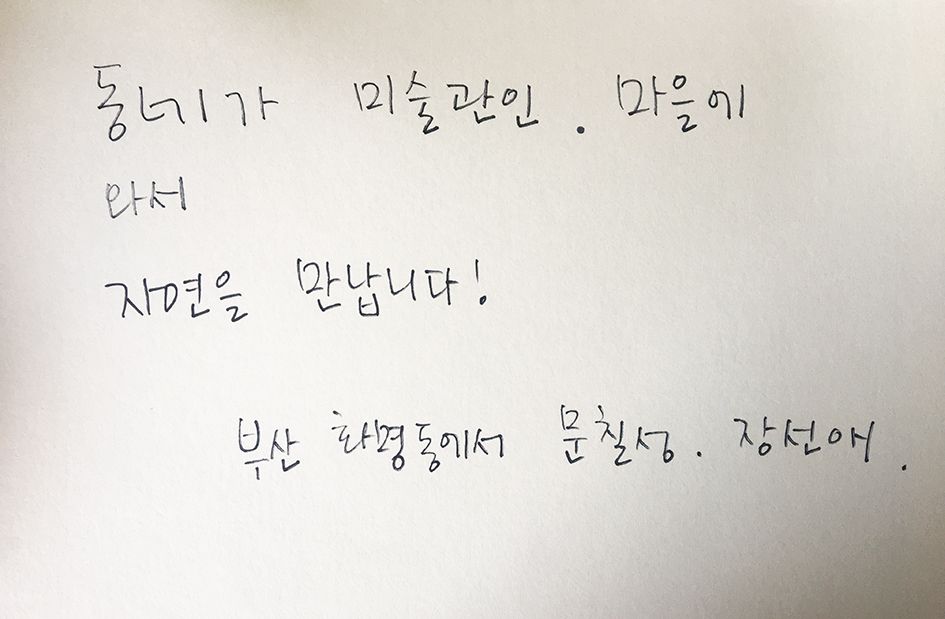 동네가 미술관인. 마을에
와서
자연을 만납니다!
부산 화명동에서 문칠성. 장선애.